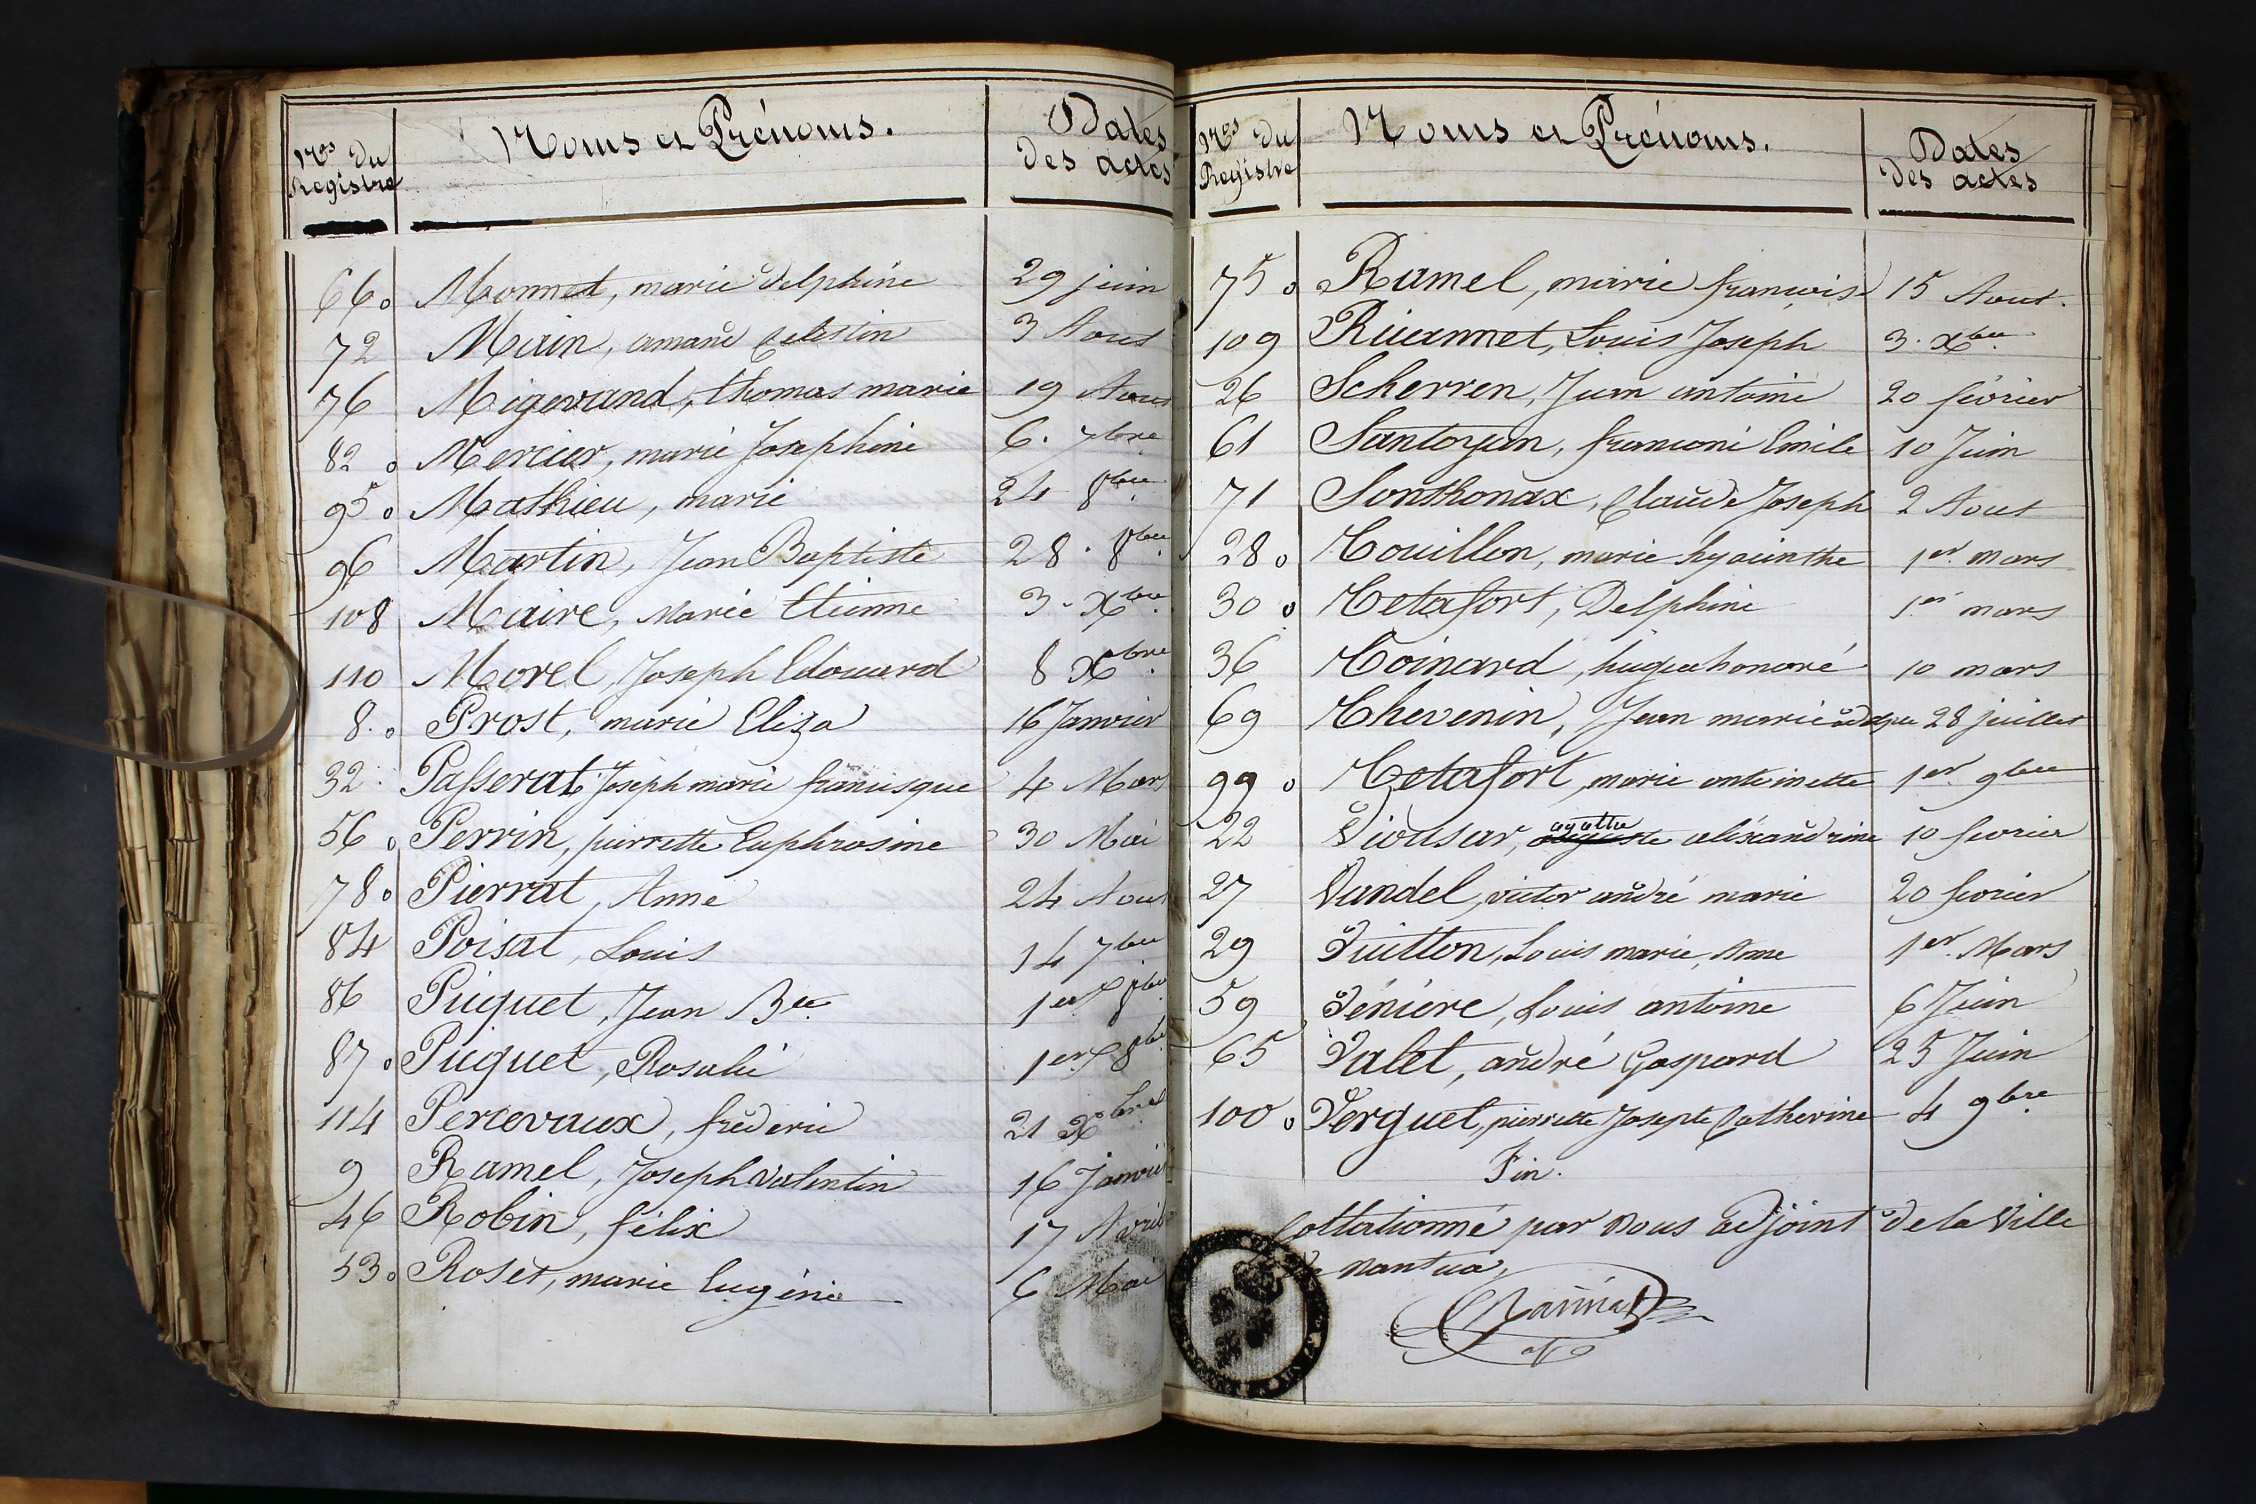 Nos du Registre | Noms et Prénoms. | Dates des actes
66 o Monnet, marie delphine 29 juin
72 Main, amand Celestin 3 Aout
76 Migerand, thomas marie 19 Aout
82 o Mercier, marie Josephine 6. 7bre
95 o Mathieu, marie 24 8bre
96 Martin, Jean Baptiste 28. 8bre
108 Maire, Marie Etienne 3. Xbre
110 Morel, Joseph Edouard 8 Xbre
8. o Prost, marie Eliza 16 Janvier
32 Passerat, Joseph marie francisque 4 Mars
56 o Perrin, pierrette Euphrosine 30 Mai
78 o Pierrat, Anne 24 Aout
84 Poisat, Louis 14 7bre
86 Puquet, Jean Bte 1er 8bre
87 o Puquet, Rosalie 1er 8bre
114 Percevaux, fréderic 21 Xbre
9 Ramel, Joseph Valentin 16 Janvier
46 Robin, félix 17 Avril
53 o Roset, marie Eugénie 6 Mai
Nos du Registre | Noms et Prénoms. | Dates des actes
75 o Ramel, marie françoise 15 Aout.
109 Riuannet, Louis Joseph 3. Xbre
26 Scherren, Jean antoine 20 février
61 Santoyan, françoni Emile 10 Juin
71 Sonthonax, Claude Joseph 2 Aout
28 o Touillon, marie hyacinthe 1er mars
30 o Tetafort, Delphine 1er mars
36 Toinard, hugue honoré 10 mars
69 Thevenin, Jean marie 28 juillet
99 o Tetafort, marie antoinette 1er 9bre
22 Viousar, agatha alexandrine 10 fevrier
27 Vandel, victor andré marie 20 fevrier
29 Vuitton, Louis marie, Anne 1er Mars
59 Vénière, Louis antoine 6 Juin
65 Valet, andré Gaspard 25 Juin
100 o Verguet, pierrette Josephte Catherine 4 9bre
Fin.
Collationné par Nous adjoint de la Ville
de Nantua,